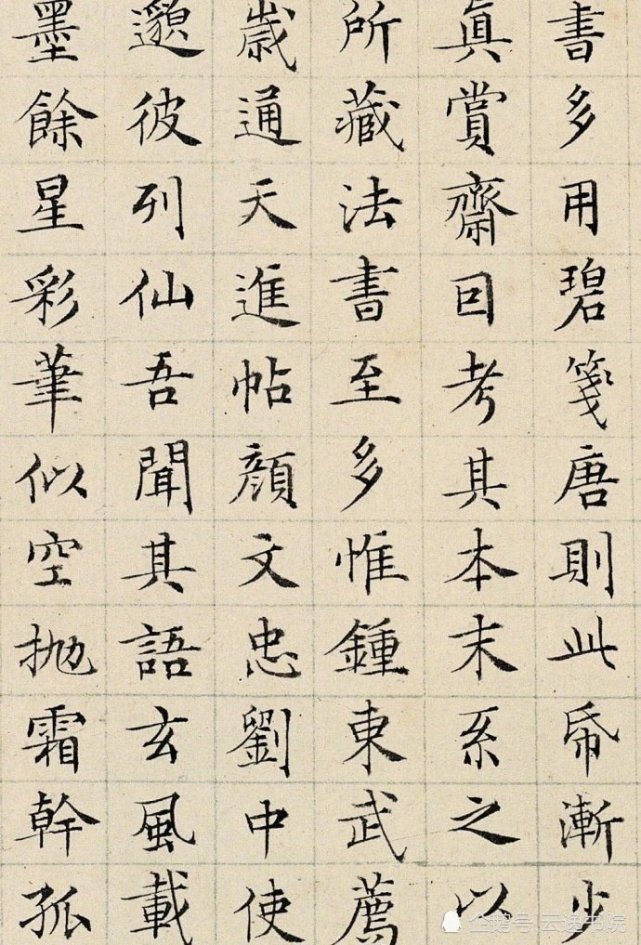 書多用碧箋唐則此帋漸少
真賞齋因考其本末系之以
所藏法書至多惟鍾東武薦
歲通天進帖顏文忠劉中使
邈彼列仙吾聞其語玄風載
墨餘星彩筆似空拋霜幹孤
企鹅号 云逸书院